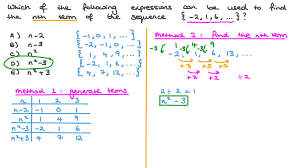 Which of the following expressions can be used to find
the nth term of the sequence {-2, 1, 6, ... }?
A) n-2 {-1, 0, 1, ... }
B) n-3 {-2, -1, 0, ... }
C) n² {1, 4, 9, ... }
D) n²-3 {-2, 1, 6, ... }
E) n²+3 {4, 7, 12, ... }
method 1: generate terms
n 1 2 3
n-2 -1 0 1
n² 1 4 9
n²-3 -2 1 6
n²+3 4 7 12
method 2: find the nth term
-2, 1, 6, 13, ...
+3 +5 +7
+2 +2 ÷2
2 ÷ 2 = 1
n² - 3